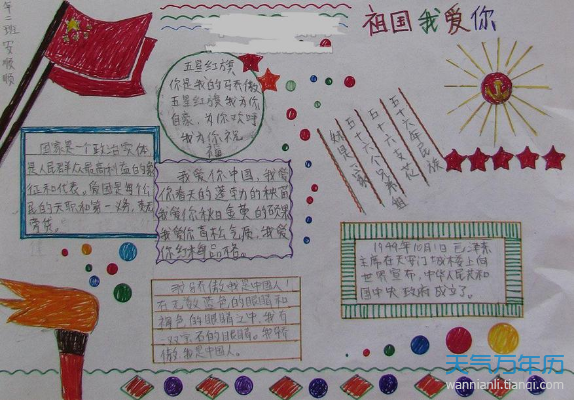 年二班
祖国我爱你
五星红旗
你是我的骄傲
五星红旗我为你
自豪,为你欢呼
我为你祝
福
国家是一个政治实体
是人民群众最高利益的象
征和代表。爱国是每个公
民的天职和第一义务,责无
旁贷。
我爱你中国,我爱
你春天的蓬勃的秧苗
我爱你秋日金黄的硕果
我爱你青松气质,我爱
你红梅品格。
五十六年民族
五十六支花
五十六个兄弟姐
妹是一家
1949年10月1日毛泽东
主席在天安门城楼上向
世界宣布,中华人民共和
国中央政府成立了。
骄傲我是中国人!
在无数蓝色的眼睛和
褐色的眼睛之中,我有
双宝石的眼睛。我骄
傲我是中国人。
天气万年历
wannianli.tianqi.com